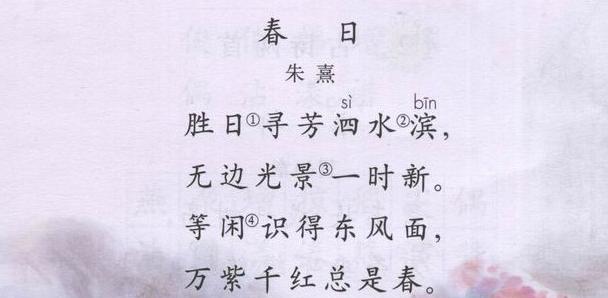 春 日
朱 熹
sì bīn
胜日①寻芳泗水②滨，
无边光景③一时新。
等闲④识得东风面，
万紫千红总是春。